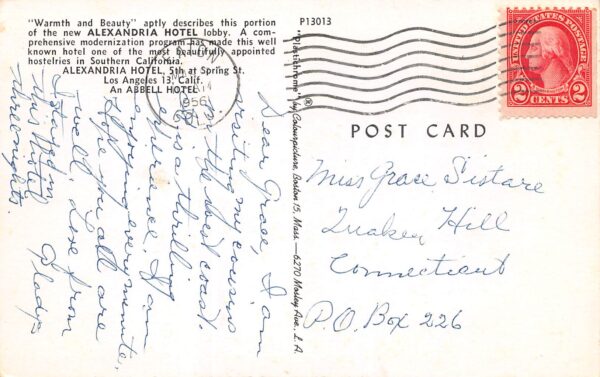 "Warmth and Beauty" aptly describes this portion
of the new ALEXANDRIA HOTEL lobby. A com-
prehensive modernization program has made this well
known hotel one of the most beautifully appointed
hostelries in Southern California.
ALEXANDRIA HOTEL, 5th at Spring St.
Los Angeles 13, Calif.
An ABBELL HOTEL
P13013
1956
UNITED STATES POSTAGE
2 CENTS 2
"Plastichrome" ® by Colourpicture, Boston 15, Mass. — 6270 Mosley Ave., L.A.
POST CARD
Dear Grace, I am
visiting my cousins
on the West coast.
It is a thrilling
experience. I am
enjoying every minute.
Hope you all are
well. Love from
Gladys
Stayed in
this Hotel
three nights.
Miss Grace Sistare
Quaker Hill
Connecticut
P.O. Box 226